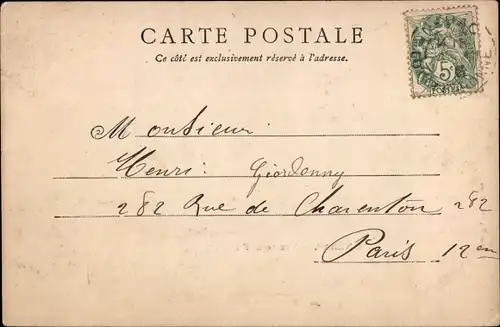 CARTE POSTALE
Ce côté est exclusivement réservé à l'adresse.
5
Monsieur
Henri Giordenny
282 Rue de Charenton 282
Paris 12em